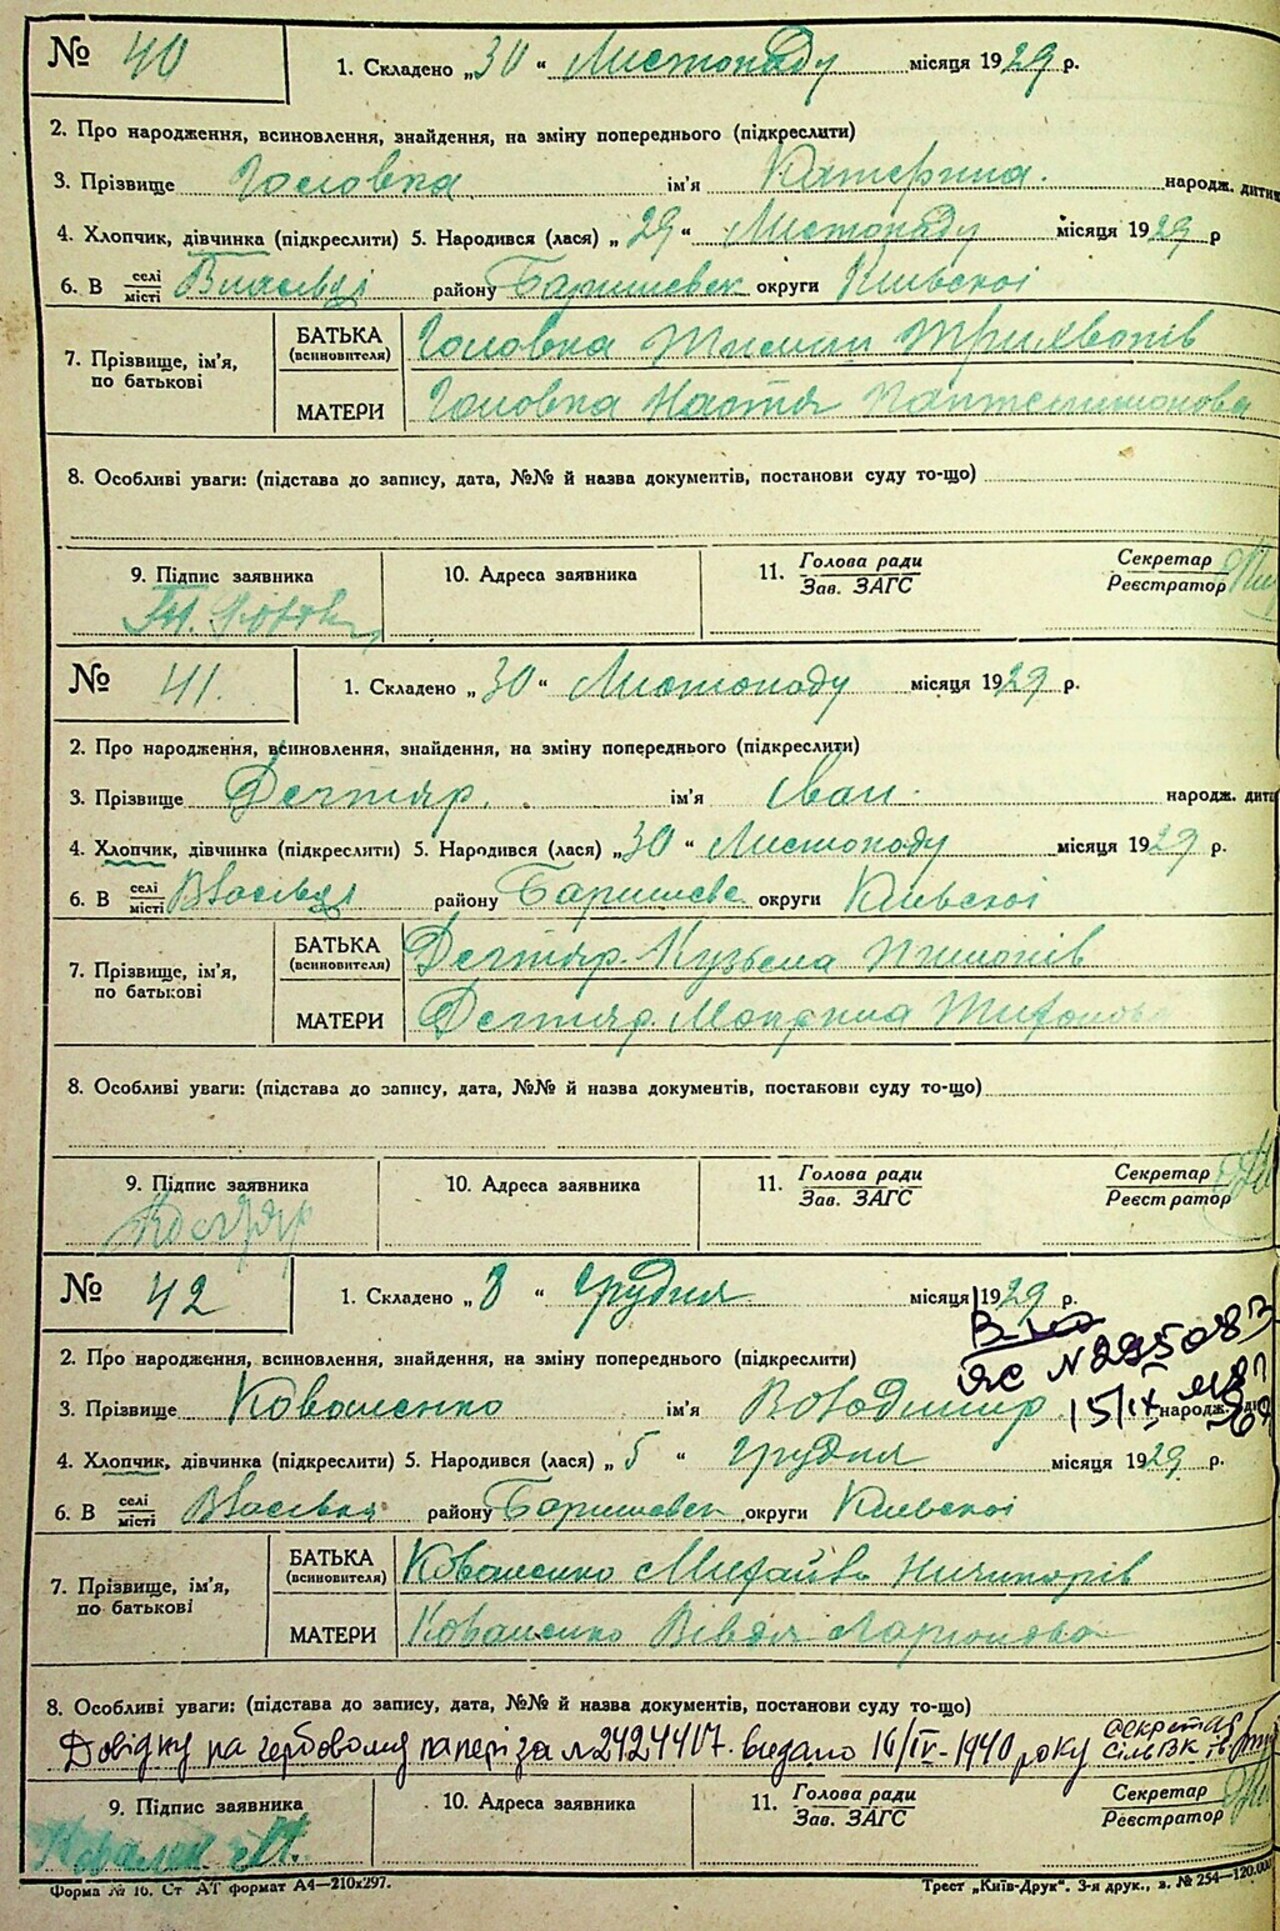 № 40 1. Складено „30“ Листопаду місяця 1929 р.
2. Про народження, всиновлення, знайдення, на зміну попереднього (підкреслити)
3. Прізвище Головка ім'я Катерина. народж. дитини
4. Хлопчик, дівчинка (підкреслити) 5. Народився (лася) „29“ Листопаду місяця 1929 р
6. В селі місті Власівці району Баришевск округи Київскоі
7. Прізвище, ім'я, по батькові БАТЬКА (всиновителя) Головка
МАТЕРИ Головка Настя Пантелимонова
8. Особливі уваги: (підстава до запису, дата, №№ й назва документів, постанови суду то-що)
9. Підпис заявника 10. Адреса заявника 11. Голова ради Зав. ЗАГС Секретар Реєстратор
№ 41. 1. Складено „30“ Листопаду місяця 1929 р.
2. Про народження, всиновлення, знайдення, на зміну попереднього (підкреслити)
3. Прізвище Дегтяр. ім'я Іван. народж. дит
4. Хлопчик, дівчинка (підкреслити) 5. Народився (лася) „30“ Листопаду місяця 1929 р.
6. В селі місті Власівці району Баришевс округи Київскоі
7. Прізвище, ім'я, по батькові БАТЬКА (всиновителя) Дегтяр. Кузьма Пилипів
МАТЕРИ Дегтяр. Мотрина Тихонова
8. Особливі уваги: (підстава до запису, дата, №№ й назва документів, постанови суду то-що)
9. Підпис заявника 10. Адреса заявника 11. Голова ради Зав. ЗАГС Секретар Реєстратор
Дегтяр
№ 42 1. Складено „8“ Грудня місяця 1929 р.
ЯС N 295083
2. Про народження, всиновлення, знайдення, на зміну попереднього (підкреслити)
3. Прізвище Коваленко ім'я Володимир 15/IX народж. дит
4. Хлопчик, дівчинка (підкреслити) 5. Народився (лася) „5“ Грудня місяця 1929 р.
6. В селі місті Власівка району Баришевск округи Київскоі
7. Прізвище, ім'я, по батькові БАТЬКА (всиновителя) Коваленко Михайло Ничипорів
МАТЕРИ Коваленко Вівдя Ларионова
8. Особливі уваги: (підстава до запису, дата, №№ й назва документів, постанови суду то-що)
Довідку на гербовому папері за N 2424407. видано 16/IV-1940 року секретар
9. Підпис заявника 10. Адреса заявника 11. Голова ради Зав. ЗАГС Секретар Реєстратор
Форма № 16. Ст. АТ формат А4—210х297. Трест „Київ-Друк“. 3-я друк., з. № 254—120.000